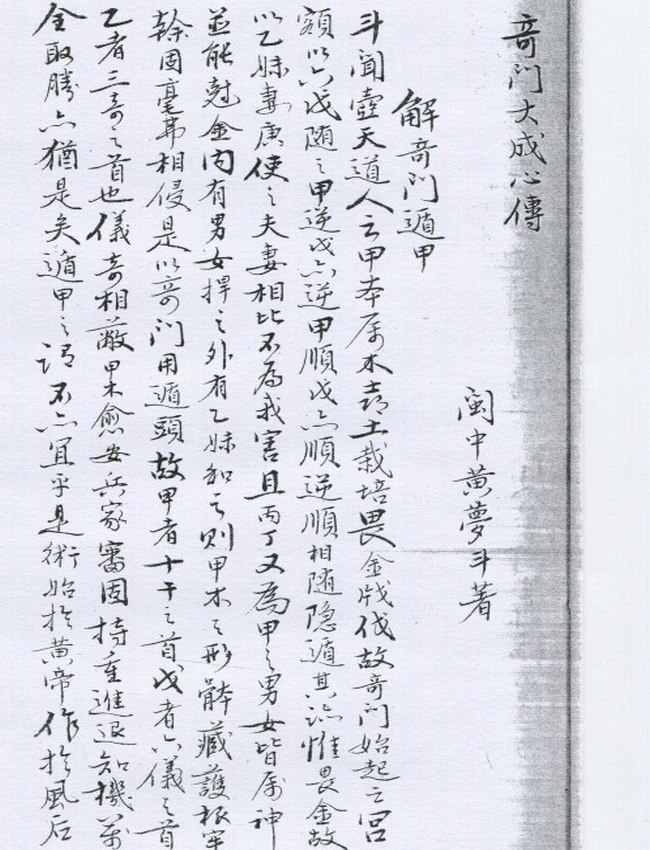 奇门大成心傳
閩中黄夢斗著
解奇门遁甲
斗聞壺天道人云甲本属木喜土栽培畏金戕伐故奇门始起之宫
额以六戊随之甲逆戊亦逆甲順戊亦順逆順相随隐遁其跡惟畏金故
以乙妹妻庚使之夫妻相比不為我害且丙丁又為甲之男女皆属神
並能尅金内有男女捍之外有乙妹和之则甲木之形骵藏護根牢
幹固毫弗相侵是以奇门用遁頭故甲者十干之首戊者六儀之首
乙者三奇之首也儀奇相蔽甲木愈安兵家審固持重進退知機萬
全取勝亦猶是矣遁甲之謂不亦宜乎是術始於黄帝作於風后